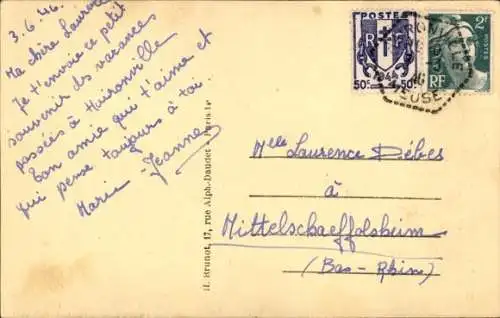 3.6.46.
Ma chère Laurence
Je t'envoie ce petit
souvenir des vacances
passées à Haironville
Ton amie qui t'aime et
qui pense toujours à toi.
Marie-Jeanne
H. Brunot, 17, rue Alph.-Daudet - Paris 14e
POSTES
RF
50c 50c
2F
POSTES
RF
RONVILLE
MEUSE
Melle Laurence Debes
à
Mittelschaeffolsheim
(Bas-Rhin)